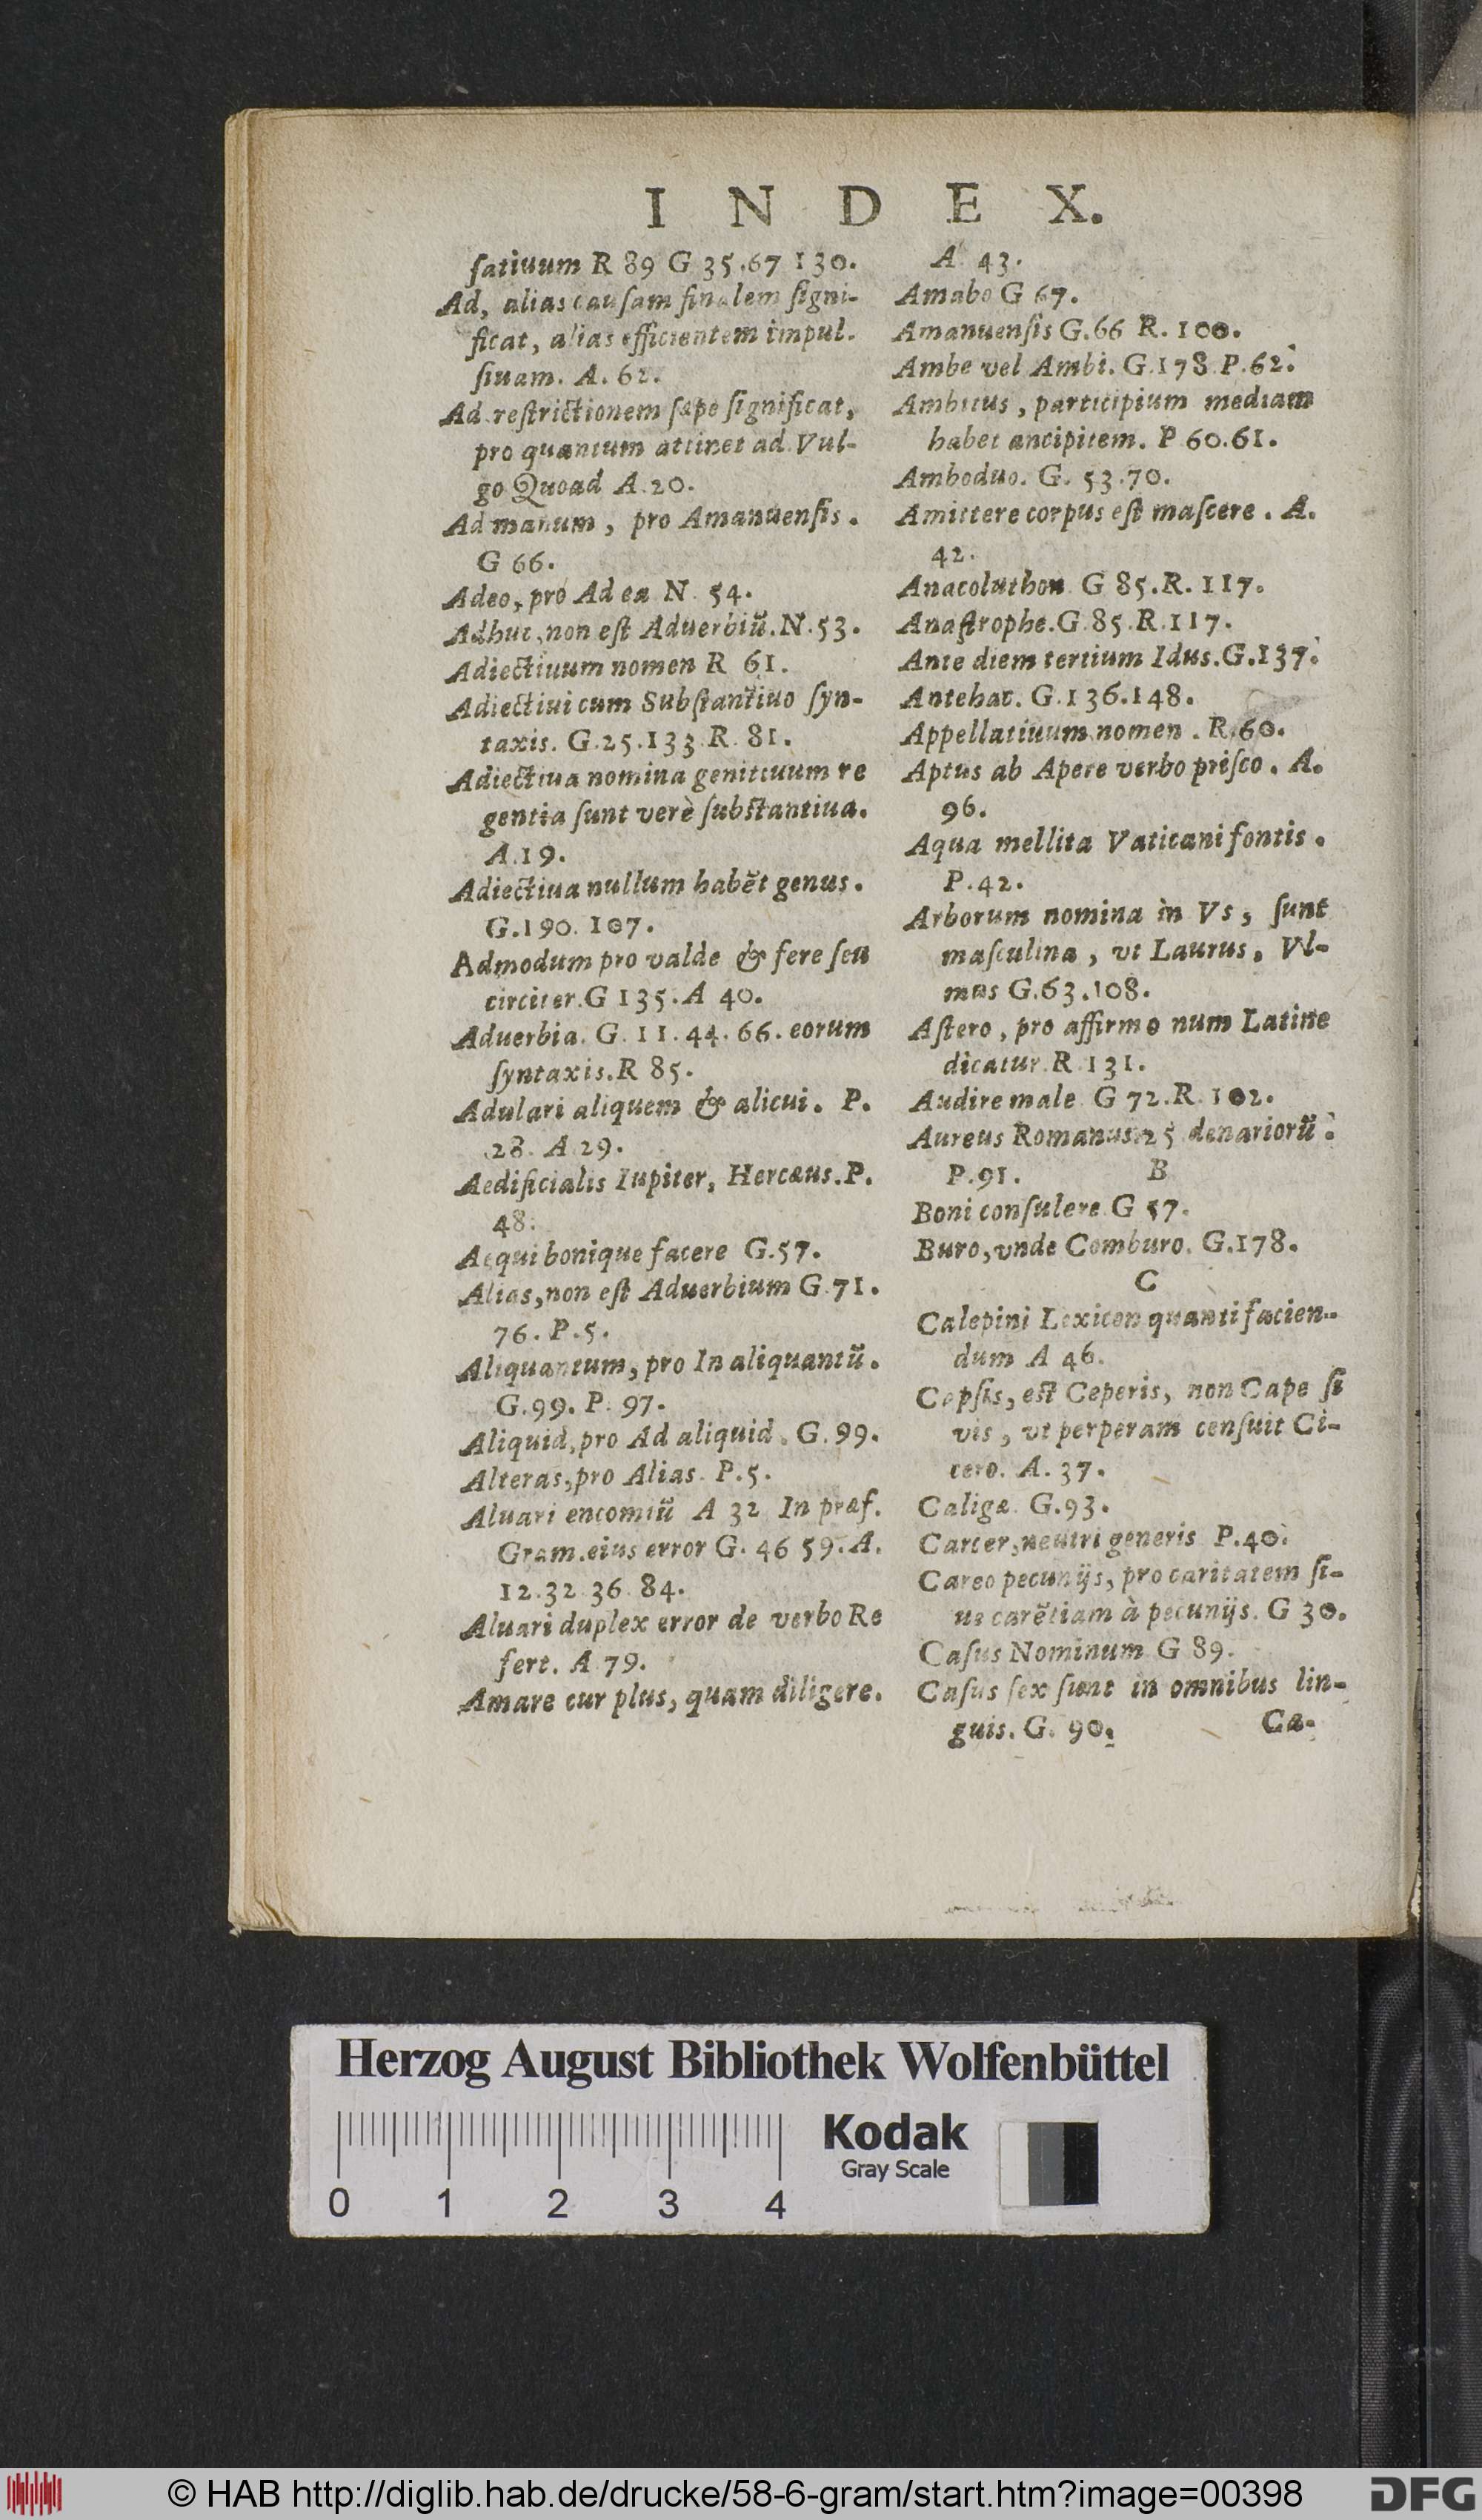 INDEX.
ſatiuum R 89 G 35.67 130.
Ad, alias cauſam finalem ſigni-
ficat, alias efficientem impul.
ſiuam. A. 62.
Ad reſtrictionem ſæpe ſignificat,
pro quantum attinet ad. Vul-
go Quoad A.20.
Ad manum, pro Amanuenſis.
G 66.
Adeo, pro Ad ea N. 54.
Adhuc, non eſt Aduerbiū. N.53.
Adiectiuum nomen R 61.
Adiectiui cum Subſtantiuo ſyn-
taxis. G.25.133 R. 81.
Adiectiua nomina genitiuum re
gentia ſunt verè ſubſtantiua.
A.19.
Adiectiua nullum habēt genus.
G.190. 107.
Admodum pro valde & fere ſeu
circiter. G 135. A 40.
Aduerbia. G. 11. 44. 66. eorum
ſyntaxis. R 85.
Adulari aliquem & alicui. P.
28. A 29.
Aedificialis Iupiter, Hercæus. P.
48.
Aequi bonique facere G.57.
Alias, non eſt Aduerbium G.71.
76. P.5.
Aliquantum, pro In aliquantū.
G.99. P. 97.
Aliquid, pro Ad aliquid. G.99.
Alteras, pro Alias. P.5.
Aluari encomiū A 32 In præf.
Gram. eius error G. 46 59. A.
12.32 36 84.
Aluari duplex error de verbo Re
fert. A 79.
Amare cur plus, quam diligere.
A 43.
Amabo G 67.
Amanuenſis G.66 R. 100.
Ambe vel Ambi. G.178 P.62.
Ambitus, participium mediam
habet ancipitem. P 60.61.
Amboduo. G. 53.70.
Amittere corpus eſt maſcere. A.
42.
Anacoluthon G 85. R. 117.
Anaſtrophe. G.85. R.117.
Ante diem tertium Idus. G.137.
Antehac. G.136.148.
Appellatiuum nomen. R.60.
Aptus ab Apere verbo priſco. A.
96.
Aqua mellita Vaticani fontis.
P.42.
Arborum nomina in Vs, ſunt
maſculina, vt Laurus, Vl-
mus G.63.108.
Aſtero, pro affirmo num Latine
dicatur R. 131.
Audire male G 72. R. 102.
Aureus Romanus 25 denariorū.
P.91.
B
Boni conſulere G 57.
Buro, vnde Comburo. G.178.
C
Calepini Lexicon quanti facien-
dum A 46.
Capſis, eſt Ceperis, non Cape ſi
vis, vt perperam cenſuit Ci-
cero. A. 37.
Caligæ G.93.
Carcer, neutri generis P.40.
Careo pecunijs, pro caritatem ſi-
ue carētiam à pecunijs. G 30.
Caſus Nominum G 89.
Caſus ſex ſunt in omnibus lin-
guis. G. 90.
Ca-
Herzog August Bibliothek Wolfenbüttel
Kodak
Gray Scale
0 1 2 3 4
© HAB http://diglib.hab.de/drucke/58-6-gram/start.htm?image=00398
DFG